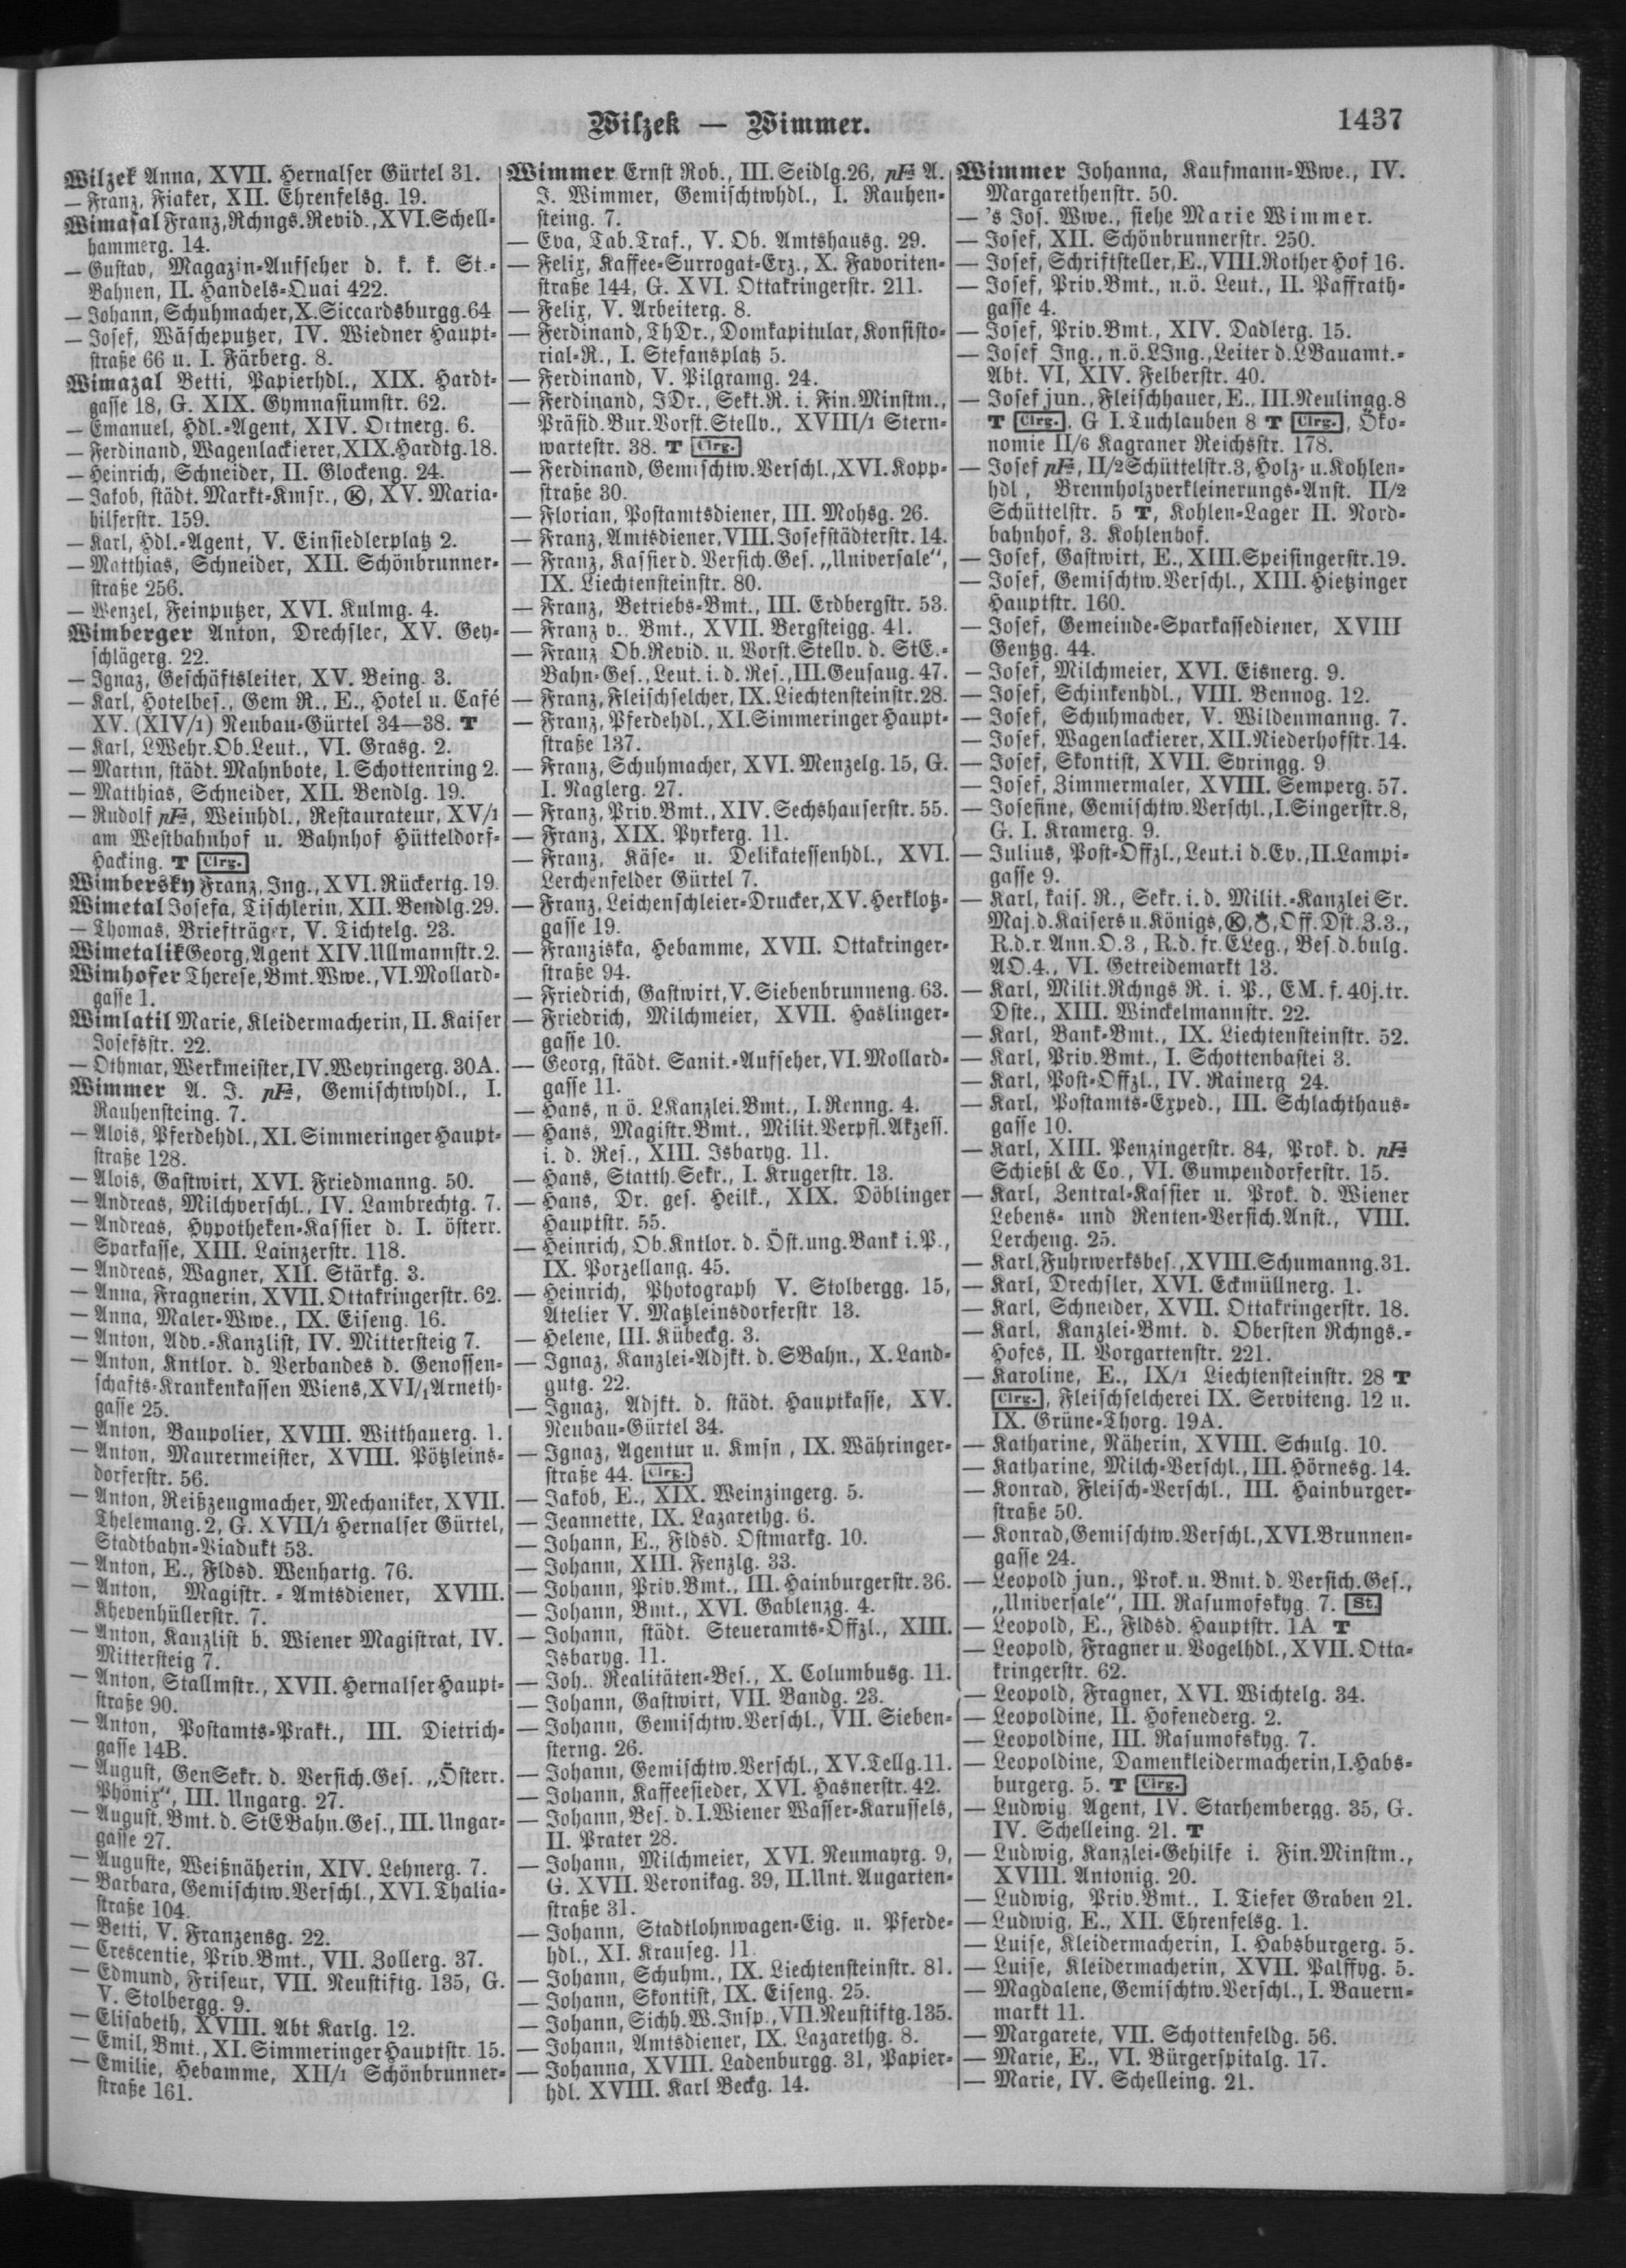 Wilzek — Wimmer.
1437
Wilzek Anna, XVII. Hernalser Gürtel 31.
— Franz, Fiaker, XII. Ehrenfelsg. 19.
Wimasal Franz, Rchngs.Revid., XVI. Schell-
hammerg. 14.
— Gustav, Magazin-Aufseher d. k. k. St.-
Bahnen, II. Handels-Quai 422.
— Johann, Schuhmacher, X. Siccardsburgg. 64
— Josef, Wäscheputzer, IV. Wiedner Haupt-
straße 66 u. I. Färberg. 8.
Wimazal Betti, Papierhdl., XIX. Hardt-
gasse 18, G. XIX. Gymnasiumstr. 62.
— Emanuel, Hdl.-Agent, XIV. Ortnerg. 6.
— Ferdinand, Wagenlackierer, XIX. Hardtg. 18.
— Heinrich, Schneider, II. Glockeng. 24.
— Jakob, städt. Markt-Kmsr., Ⓚ, XV. Maria-
hilferstr. 159.
— Karl, Hdl.-Agent, V. Einsiedlerplatz 2.
— Matthias, Schneider, XII. Schönbrunner-
straße 256.
— Wenzel, Feinputzer, XVI. Kulmg. 4.
Wimberger Anton, Drechsler, XV. Gey-
schlägerg. 22.
— Ignaz, Geschäftsleiter, XV. Being. 3.
— Karl, Hotelbes., Gem R., E., Hotel u. Café
XV. (XIV/1) Neubau-Gürtel 34—38. T
— Karl, LWehr.Ob.Leut., VI. Grasg. 2.
— Martin, städt. Mahnbote, I. Schottenring 2.
— Matthias, Schneider, XII. Bendlg. 19.
— Rudolf pFa, Weinhdl., Restaurateur, XV/1
am Westbahnhof u. Bahnhof Hütteldorf-
Hacking. T Clrg.
Wimbersky Franz, Ing., XVI. Rückertg. 19.
Wimetal Josefa, Tischlerin, XII. Bendlg. 29.
— Thomas, Briefträger, V. Tichtelg. 23.
Wimetalik Georg, Agent XIV. Ullmannstr. 2.
Wimhofer Therese, Bmt.Wwe., VI. Mollard-
gasse 1.
Wimlatil Marie, Kleidermacherin, II. Kaiser
Josefsstr. 22.
— Othmar, Werkmeister, IV. Weyringerg. 30A.
Wimmer A. J. pFa, Gemischtwhdl., I.
Rauhensteing. 7.
— Alois, Pferdehdl., XI. Simmeringer Haupt-
straße 128.
— Alois, Gastwirt, XVI. Friedmanng. 50.
— Andreas, Milchverschl., IV. Lambrechtg. 7.
— Andreas, Hypotheken-Kassier d. I. österr.
Sparkasse, XIII. Lainzerstr. 118.
— Andreas, Wagner, XII. Stärkg. 3.
— Anna, Fragnerin, XVII. Ottakringerstr. 62.
— Anna, Maler-Wwe., IX. Eiseng. 16.
— Anton, Adv.-Kanzlist, IV. Mittersteig 7.
— Anton, Kntlor. d. Verbandes d. Genossen-
schafts-Krankenkassen Wiens, XVI/1 Arneth-
gasse 25.
— Anton, Baupolier, XVIII. Witthauerg. 1.
— Anton, Maurermeister, XVIII. Pötzleins-
dorferstr. 56.
— Anton, Reißzeugmacher, Mechaniker, XVII.
Thelemang. 2, G. XVII/1 Hernalser Gürtel,
Stadtbahn-Viadukt 53.
— Anton, E., Fldsd. Wenhartg. 76.
— Anton, Magistr.-Amtsdiener, XVIII.
Khevenhüllerstr. 7.
— Anton, Kanzlist b. Wiener Magistrat, IV.
Mittersteig 7.
— Anton, Stallmstr., XVII. Hernalser Haupt-
straße 90.
— Anton, Postamts-Prakt., III. Dietrich-
gasse 14B.
— August, GenSekr. d. Versich.Ges. „Österr.
Phönix“, III. Ungarg. 27.
— August, Bmt. d. StEBahn.Ges., III. Ungar-
gasse 27.
— Auguste, Weißnäherin, XIV. Lehnerg. 7.
— Barbara, Gemischtw.Verschl., XVI. Thalia-
straße 104.
— Betti, V. Franzensg. 22.
— Crescentie, Priv.Bmt., VII. Zollerg. 37.
— Edmund, Friseur, VII. Neustiftg. 135, G.
V. Stolbergg. 9.
— Elisabeth, XVIII. Abt Karlg. 12.
— Emil, Bmt., XI. Simmeringer Hauptstr. 15.
— Emilie, Hebamme, XII/1 Schönbrunner-
straße 161.
Wimmer Ernst Rob., III. Seidlg. 26, pFa A.
J. Wimmer, Gemischtwhdl., I. Rauhen-
steing. 7.
— Eva, Tab.Traf., V. Ob. Amtshausg. 29.
— Felix, Kaffee-Surrogat-Erz., X. Favoriten-
straße 144, G. XVI. Ottakringerstr. 211.
— Felix, V. Arbeiterg. 8.
— Ferdinand, ThDr., Domkapitular, Konsisto-
rial-R., I. Stefansplatz 5.
— Ferdinand, V. Pilgramg. 24.
— Ferdinand, JDr., Sekt.R. i. Fin.Minstm.,
Präsid.Bur.Vorst.Stellv., XVIII/1 Stern-
wartestr. 38. T Clrg.
— Ferdinand, Gemischtw.Verschl., XVI. Kopp-
straße 30.
— Florian, Postamtsdiener, III. Mohsg. 26.
— Franz, Amtsdiener, VIII. Josefstädterstr. 14.
— Franz, Kassier d. Versich.Ges. „Universale“,
IX. Liechtensteinstr. 80.
— Franz, Betriebs-Bmt., III. Erdbergstr. 53.
— Franz v., Bmt., XVII. Bergsteigg. 41.
— Franz Ob.Revid. u. Vorst.Stellv. d. StE.-
Bahn-Ges., Leut. i. d. Res., III. Geusaug. 47.
— Franz, Fleischselcher, IX. Liechtensteinstr. 28.
— Franz, Pferdehdl., XI. Simmeringer Haupt-
straße 137.
— Franz, Schuhmacher, XVI. Menzelg. 15, G.
I. Naglerg. 27.
— Franz, Priv.Bmt., XIV. Sechshauserstr. 55.
— Franz, XIX. Pyrkerg. 11.
— Franz, Käse- u. Delikatessenhdl., XVI.
Lerchenfelder Gürtel 7.
— Franz, Leichenschleier-Drucker, XV. Herklotz-
gasse 19.
— Franziska, Hebamme, XVII. Ottakringer-
straße 94.
— Friedrich, Gastwirt, V. Siebenbrunneng. 63.
— Friedrich, Milchmeier, XVII. Haslinger-
gasse 10.
— Georg, städt. Sanit.-Aufseher, VI. Mollard-
gasse 11.
— Hans, n ö. LKanzlei.Bmt., I. Renng. 4.
— Hans, Magistr.Bmt., Milit.Verpfl.Akzess.
i. d. Res., XIII. Isbaryg. 11.
— Hans, Statth.Sekr., I. Krugerstr. 13.
— Hans, Dr. ges. Heilk., XIX. Döblinger
Hauptstr. 55.
— Heinrich, Ob.Kntlor. d. Öst.ung.Bank i.P.,
IX. Porzellang. 45.
— Heinrich, Photograph V. Stolbergg. 15,
Atelier V. Matzleinsdorferstr 13.
— Helene, III. Kübeckg. 3.
— Ignaz, Kanzlei-Adjkt. d. SBahn., X. Land-
gutg. 22.
— Ignaz, Adjkt. d. städt. Hauptkasse, XV.
Neubau-Gürtel 34.
— Ignaz, Agentur u. Kmsn, IX. Währinger-
straße 44. Clrg.
— Jakob, E., XIX. Weinzingerg. 5.
— Jeannette, IX. Lazarethg. 6.
— Johann, E., Fldsd. Ostmarkg. 10.
— Johann, XIII. Fenzlg. 33.
— Johann, Priv.Bmt., III. Hainburgerstr. 36.
— Johann, Bmt., XVI. Gablenzg. 4.
— Johann, städt. Steueramts-Offzl., XIII.
Isbaryg. 11.
— Joh., Realitäten-Bes., X. Columbusg. 11.
— Johann, Gastwirt, VII. Bandg. 23.
— Johann, Gemischtw.Verschl., VII. Sieben-
sterng. 26.
— Johann, Gemischtw.Verschl., XV. Tellg. 11.
— Johann, Kaffeesieder, XVI. Hasnerstr. 42.
— Johann, Bes. d. I. Wiener Wasser-Karussels,
II. Prater 28.
— Johann, Milchmeier, XVI. Neumayrg. 9,
G. XVII. Veronikag. 39, II. Unt. Augarten-
straße 31.
— Johann, Stadtlohnwagen-Eig. u. Pferde-
hdl., XI. Krauseg. 11.
— Johann, Schuhm., IX. Liechtensteinstr. 81.
— Johann, Skontist, IX. Eiseng. 25.
— Johann, Sichh.W.Insp., VII. Neustiftg. 135.
— Johann, Amtsdiener, IX. Lazarethg. 8.
— Johanna, XVIII. Ladenburgg. 31, Papier-
hdl. XVIII. Karl Beckg. 14.
Wimmer Johanna, Kaufmann-Wwe., IV.
Margarethenstr. 50.
— 's Jos. Wwe., siehe Marie Wimmer.
— Josef, XII. Schönbrunnerstr. 250.
— Josef, Schriftsteller, E., VIII. Rother Hof 16.
— Josef, Priv.Bmt., n.ö. Leut., II. Paffrath-
gasse 4.
— Josef, Priv.Bmt., XIV. Dadlerg. 15.
— Josef Ing., n.ö.LIng., Leiter d. LBauamt.-
Abt. VI, XIV. Felberstr. 40.
— Josef jun., Fleischhauer, E., III. Neulingg. 8
T Clrg., G I. Tuchlauben 8 T Clrg., Öko-
nomie II/6 Kagraner Reichsstr. 178.
— Josef pFa, II/2 Schüttelstr. 3, Holz- u. Kohlen-
hdl, Brennholzverkleinerungs-Anst. II/2
Schüttelstr. 5 T, Kohlen-Lager II. Nord-
bahnhof, 3. Kohlenhof.
— Josef, Gastwirt, E., XIII. Speisingerstr. 19.
— Josef, Gemischtw.Verschl., XIII. Hietzinger
Hauptstr. 160.
— Josef, Gemeinde-Sparkassediener, XVIII
Gentzg. 44.
— Josef, Milchmeier, XVI. Eisnerg. 9.
— Josef, Schinkenhdl., VIII. Bennog. 12.
— Josef, Schuhmacher, V. Wildenmanng. 7.
— Josef, Wagenlackierer, XII. Niederhofstr. 14.
— Josef, Skontist, XVII. Syringg. 9
— Josef, Zimmermaler, XVIII. Semperg. 57.
— Josefine, Gemischtw.Verschl., I. Singerstr. 8,
G. I. Kramerg. 9.
— Julius, Post-Offzl., Leut. i d. Ev., II. Lampi-
gasse 9.
— Karl, kais. R., Sekr. i. d. Milit.-Kanzlei Sr.
Maj. d. Kaisers u. Königs, Ⓚ, Off. Dst. Z. 3.,
R. d. r. Ann. O. 3., R. d. fr. ELeg., Bes. d. bulg.
AO. 4., VI. Getreidemarkt 13.
— Karl, Milit.Rchngs R. i. P., EM. f. 40j. tr.
Dste., XIII. Winckelmannstr. 22.
— Karl, Bank-Bmt., IX. Liechtensteinstr. 52.
— Karl, Priv.Bmt., I. Schottenbastei 3.
— Karl, Post-Offzl., IV. Rainerg 24.
— Karl, Postamts-Exped., III. Schlachthaus-
gasse 10.
— Karl, XIII. Penzingerstr. 84, Prok. d. pFa
Schießl & Co., VI. Gumpendorferstr. 15.
— Karl, Zentral-Kassier u. Prok. d. Wiener
Lebens- und Renten-Versich.Anst., VIII.
Lercheng. 25.
— Karl, Fuhrwerksbes., XVIII. Schumanng. 31.
— Karl, Drechsler, XVI. Eckmüllnerg. 1.
— Karl, Schneider, XVII. Ottakringerstr. 18.
— Karl, Kanzlei-Bmt. d. Obersten Rchngs.-
Hofes, II. Vorgartenstr. 221.
— Karoline, E., IX/1 Liechtensteinstr. 28 T
Clrg., Fleischselcherei IX. Serviteng. 12 u.
IX. Grüne-Thorg. 19A.
— Katharine, Näherin, XVIII. Schulg. 10.
— Katharine, Milch-Verschl., III. Hörnesg. 14.
— Konrad, Fleisch-Verschl., III. Hainburger-
straße 50.
— Konrad, Gemischtw.Verschl., XVI. Brunnen-
gasse 24.
— Leopold jun., Prok. u. Bmt. d. Versich.Ges.,
„Universale“, III. Rasumofskyg. 7. St.
— Leopold, E., Fldsd. Hauptstr. 1A T
— Leopold, Fragner u. Vogelhdl., XVII. Otta-
kringerstr. 62.
— Leopold, Fragner, XVI. Wichtelg. 34.
— Leopoldine, II. Hofenederg. 2.
— Leopoldine, III. Rasumofskyg. 7.
— Leopoldine, Damenkleidermacherin, I. Habs-
burgerg. 5. T Clrg.
— Ludwig, Agent, IV. Starhembergg. 35, G.
IV. Schelleing. 21. T
— Ludwig, Kanzlei-Gehilfe i. Fin.Minstm.,
XVIII. Antonig. 20.
— Ludwig, Priv.Bmt., I. Tiefer Graben 21.
— Ludwig, E., XII. Ehrenfelsg. 1.
— Luise, Kleidermacherin, I. Habsburgerg. 5.
— Luise, Kleidermacherin, XVII. Palffyg. 5.
— Magdalene, Gemischtw.Verschl., I. Bauern-
markt 11.
— Margarete, VII. Schottenfeldg. 56.
— Marie, E., VI. Bürgerspitalg. 17.
— Marie, IV. Schelleing. 21.